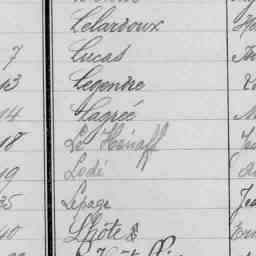 Lelardoux
7 Lucas
13 Legendre
14 Lagrée
18 Le Hénaff
19 Lodé
35 Lepage
40 Lhôte